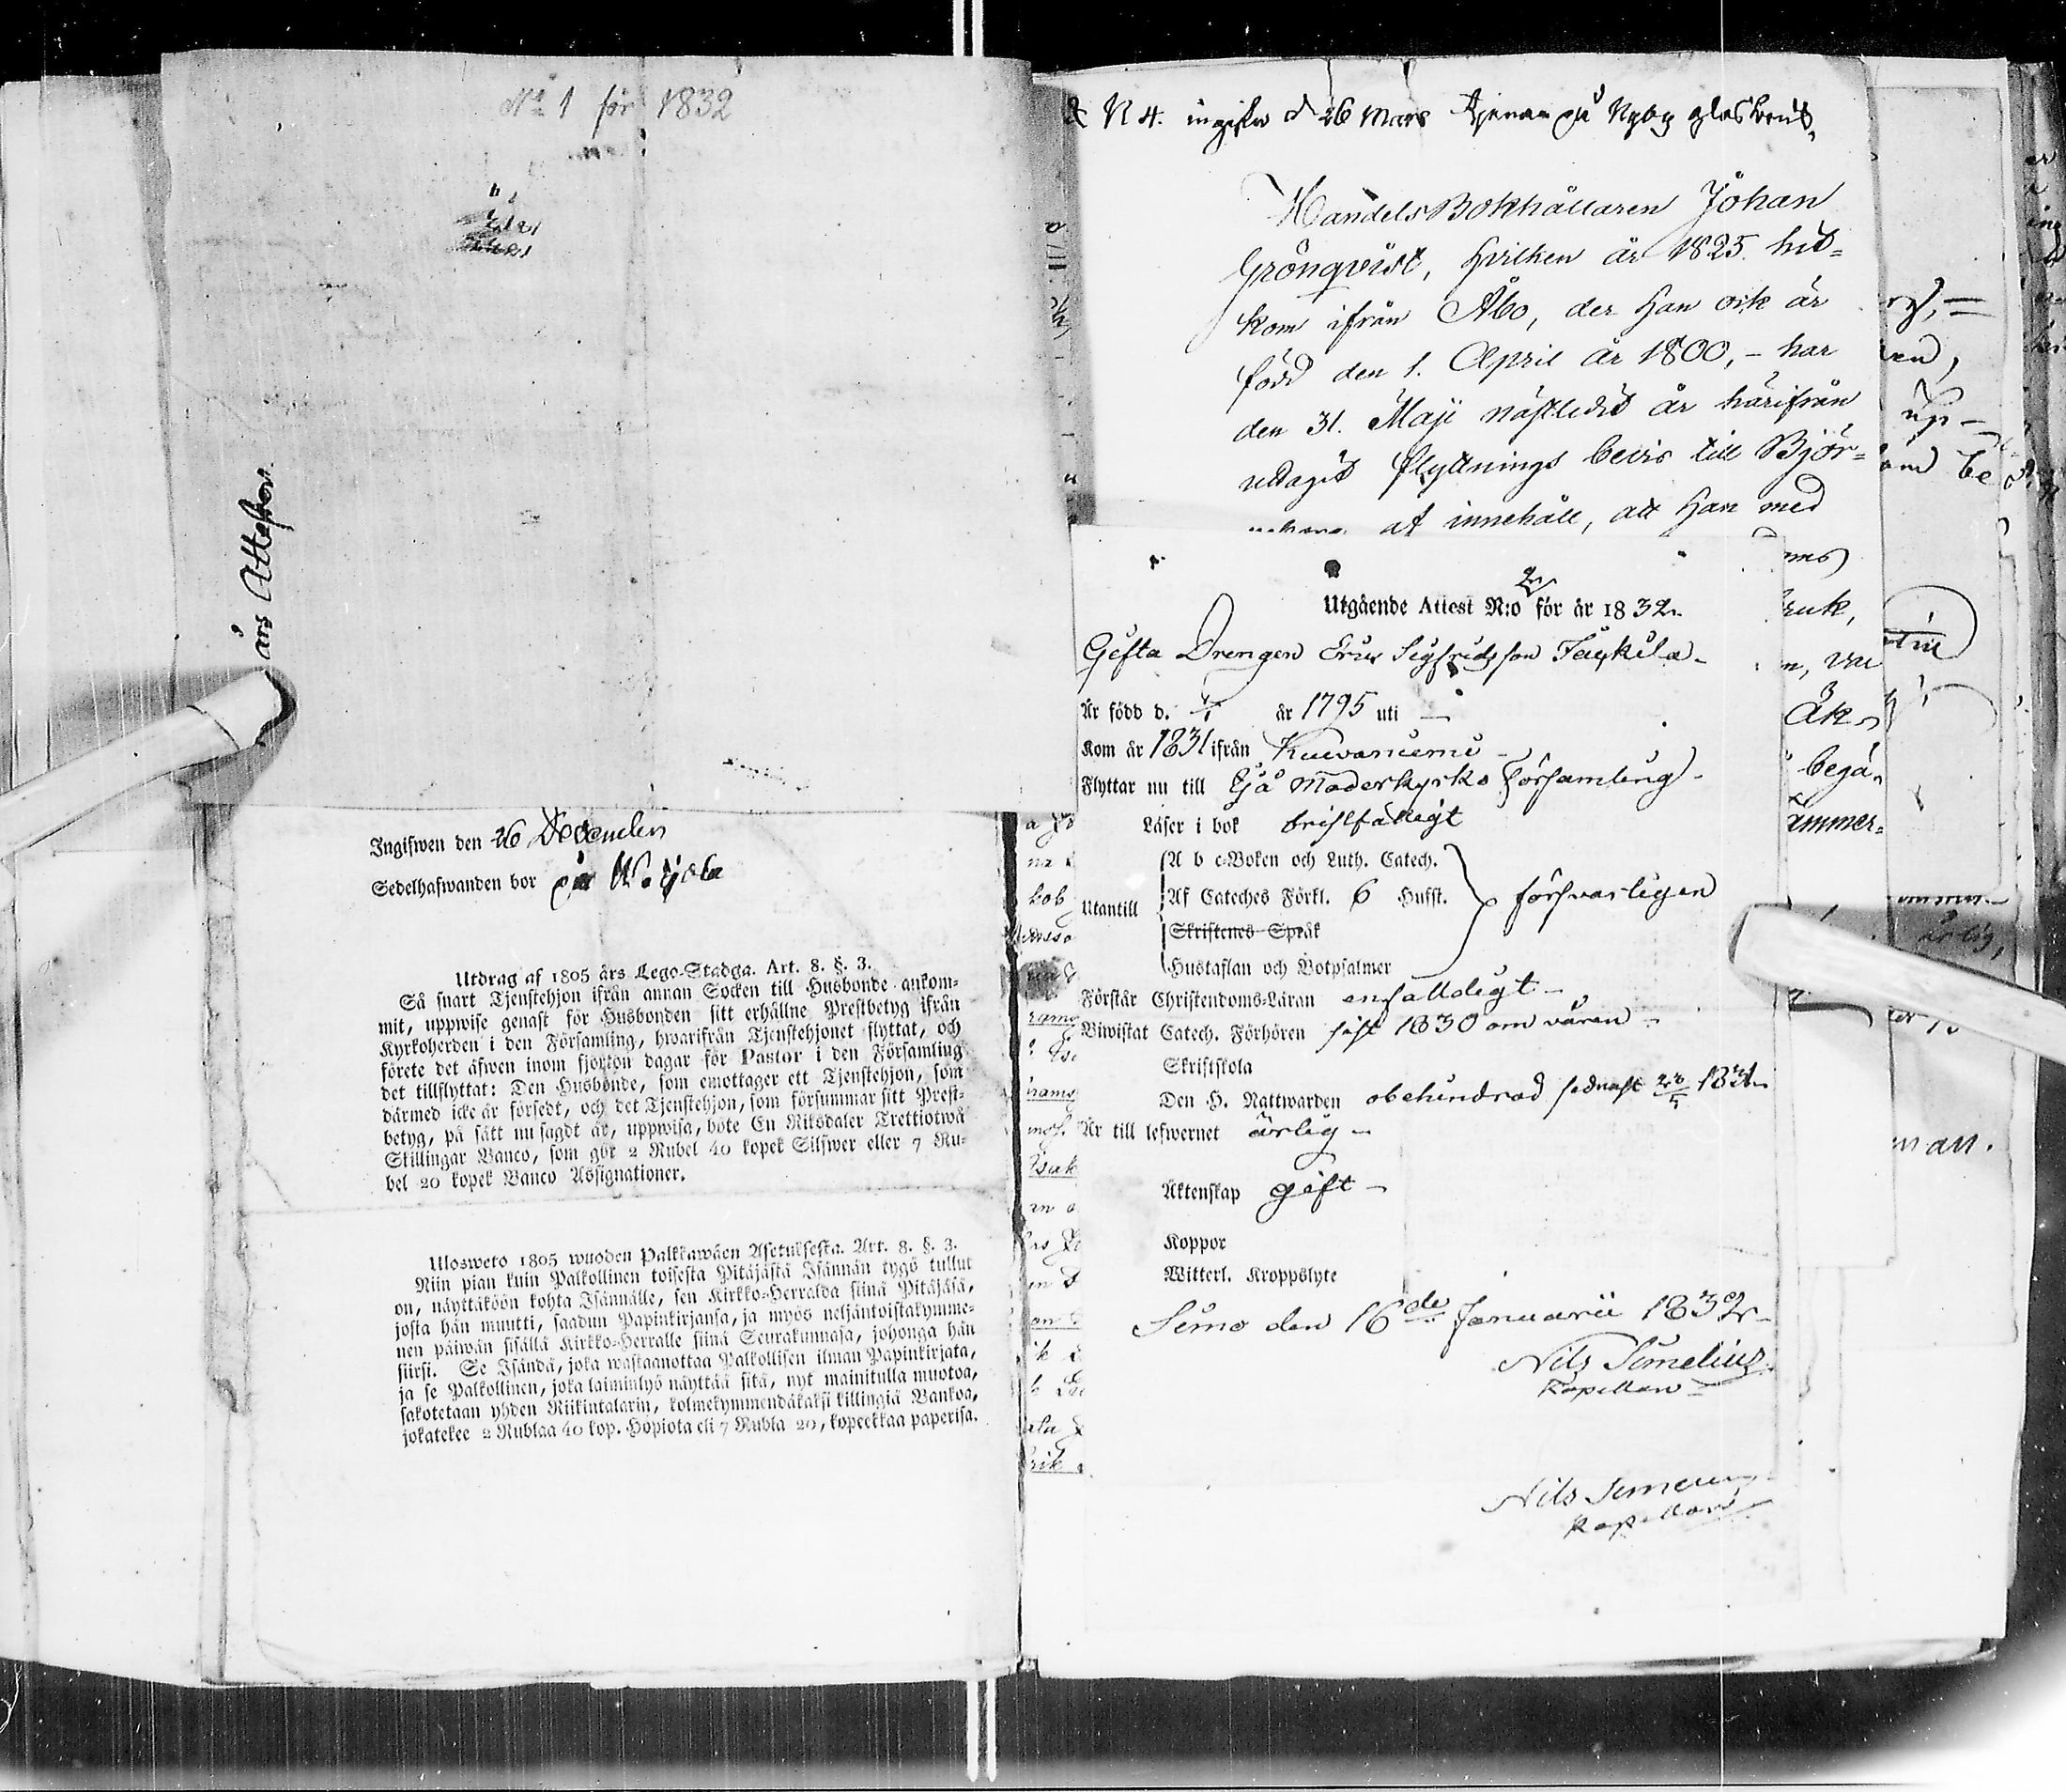 No 1 för 1832
års Attester.
Ingifwen den 26 December
Sedelhafwanden bor på
Utdrag af 1805 års Lego-Stadga. Art. 8. §. 3.
Så snart Tjenstehjon ifrån annan Socken till Husbonde ankom-
mit, uppwise genast för Husbonden sitt erhållne Prestbetyg ifrån
Kyrkoherden i den Församling, hwarifrån Tjenstehjonet flyttat, och
förete det äfwen inom fjorton dagar för Pastor i den Församling
det tillflyttat: Den Husbonde, som emottager ett Tjenstehjon, som
därmed icke är försedt, och det Tjenstehjon, som försummar sitt Prest-
betyg, på sätt nu sagdt är, uppwisa, böte En Riksdaler Trettiotwå
Skillingar Banco, som gör 2 Rubel 40 kopek Silfwer eller 7 Ru-
bel 20 kopek Banco Assignationer.
Ulosweto 1805 wuoden Palkkawäen Asetuksesta. Art. 8. §. 3.
Niin pian kuin Palkollinen toisesta Pitäjästä Isännän tygö tullut
on, näyttäköön kohta Isännälle, sen Kirkko-Herralda siinä Pitäjäsä,
josta hän muutti, saadun Papinkirjansa, ja myös neljäntoistakymme-
nen päiwän sisällä Kirkko-Herralle siinä Seurakunnasa, johonga hän
siirsi. Se Isändä, joka wastaanottaa Palkollisen ilman Papinkirjata,
ja se Palkollinen, joka laiminlyö näyttää sitä, nyt mainitulla muotoa,
sakotetaan yhden Riikintalarin, kolmekymmendäkaksi killingiä Bankoa,
jokatekee 2 Rublaa 40 kop. Hopiota eli 7 Rubla 20, kopeekkaa paperisa.
N 4. ingifw d 26 Mars tjenar på Nyby glasbruk,
HandelsBokhållaren Johan
Grönqvist, hvilken år 1825 hit-
kom ifrån Åbo, der Han ock är
född den 1. April år 1800, - har
den 31. Maji nästledit år härifrån
uttagit flyttnings bevis till Björ=
af innehåll, att Han med
Utgående Attest N:o 2 för år 1832.
Gifta Drengen Eric Sigfridsson
Är född d. år 1795 uti —
Kom år 1831 ifrån Kuivaniemi -
Flyttar nu till Ijå Moderkyrko Församling -
Läser i bok bristfälligt
Utantill
A b c-Boken och Luth. Catech.
Af Cateches Förkl. 6 Hufst. försvarligen
Skriftenes Språk
Hustaflan och Botpsalmer
Förstår Christendoms-Läran enfalldigt -
Biwistat Catech. Förhören sist 1830 om våren -
Skriftskola
Den H. Nattwarden obehindrad sednast 1831
Är till lefwernet ärlig -
Äktenskap gift -
Koppor
Witterl. Kroppslyte
Simo den 16de Januarii 1832 -
Nils Simelius
Kapellan
Nils Simelius
Kapellan